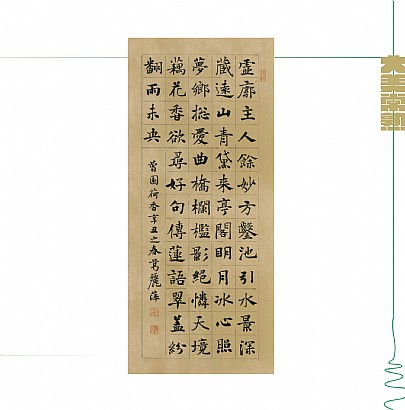 虛廓主人餘妙方鑿池引水景深
藏遠山青黛來亭閣明月冰心照
夢鄉総愛曲橋欄檻影絕憐天境
藕花香欲尋好句傳蓮語翠蓋紛
翻雨未央
曾園荷香辛丑之春葛麗萍
大美常熟